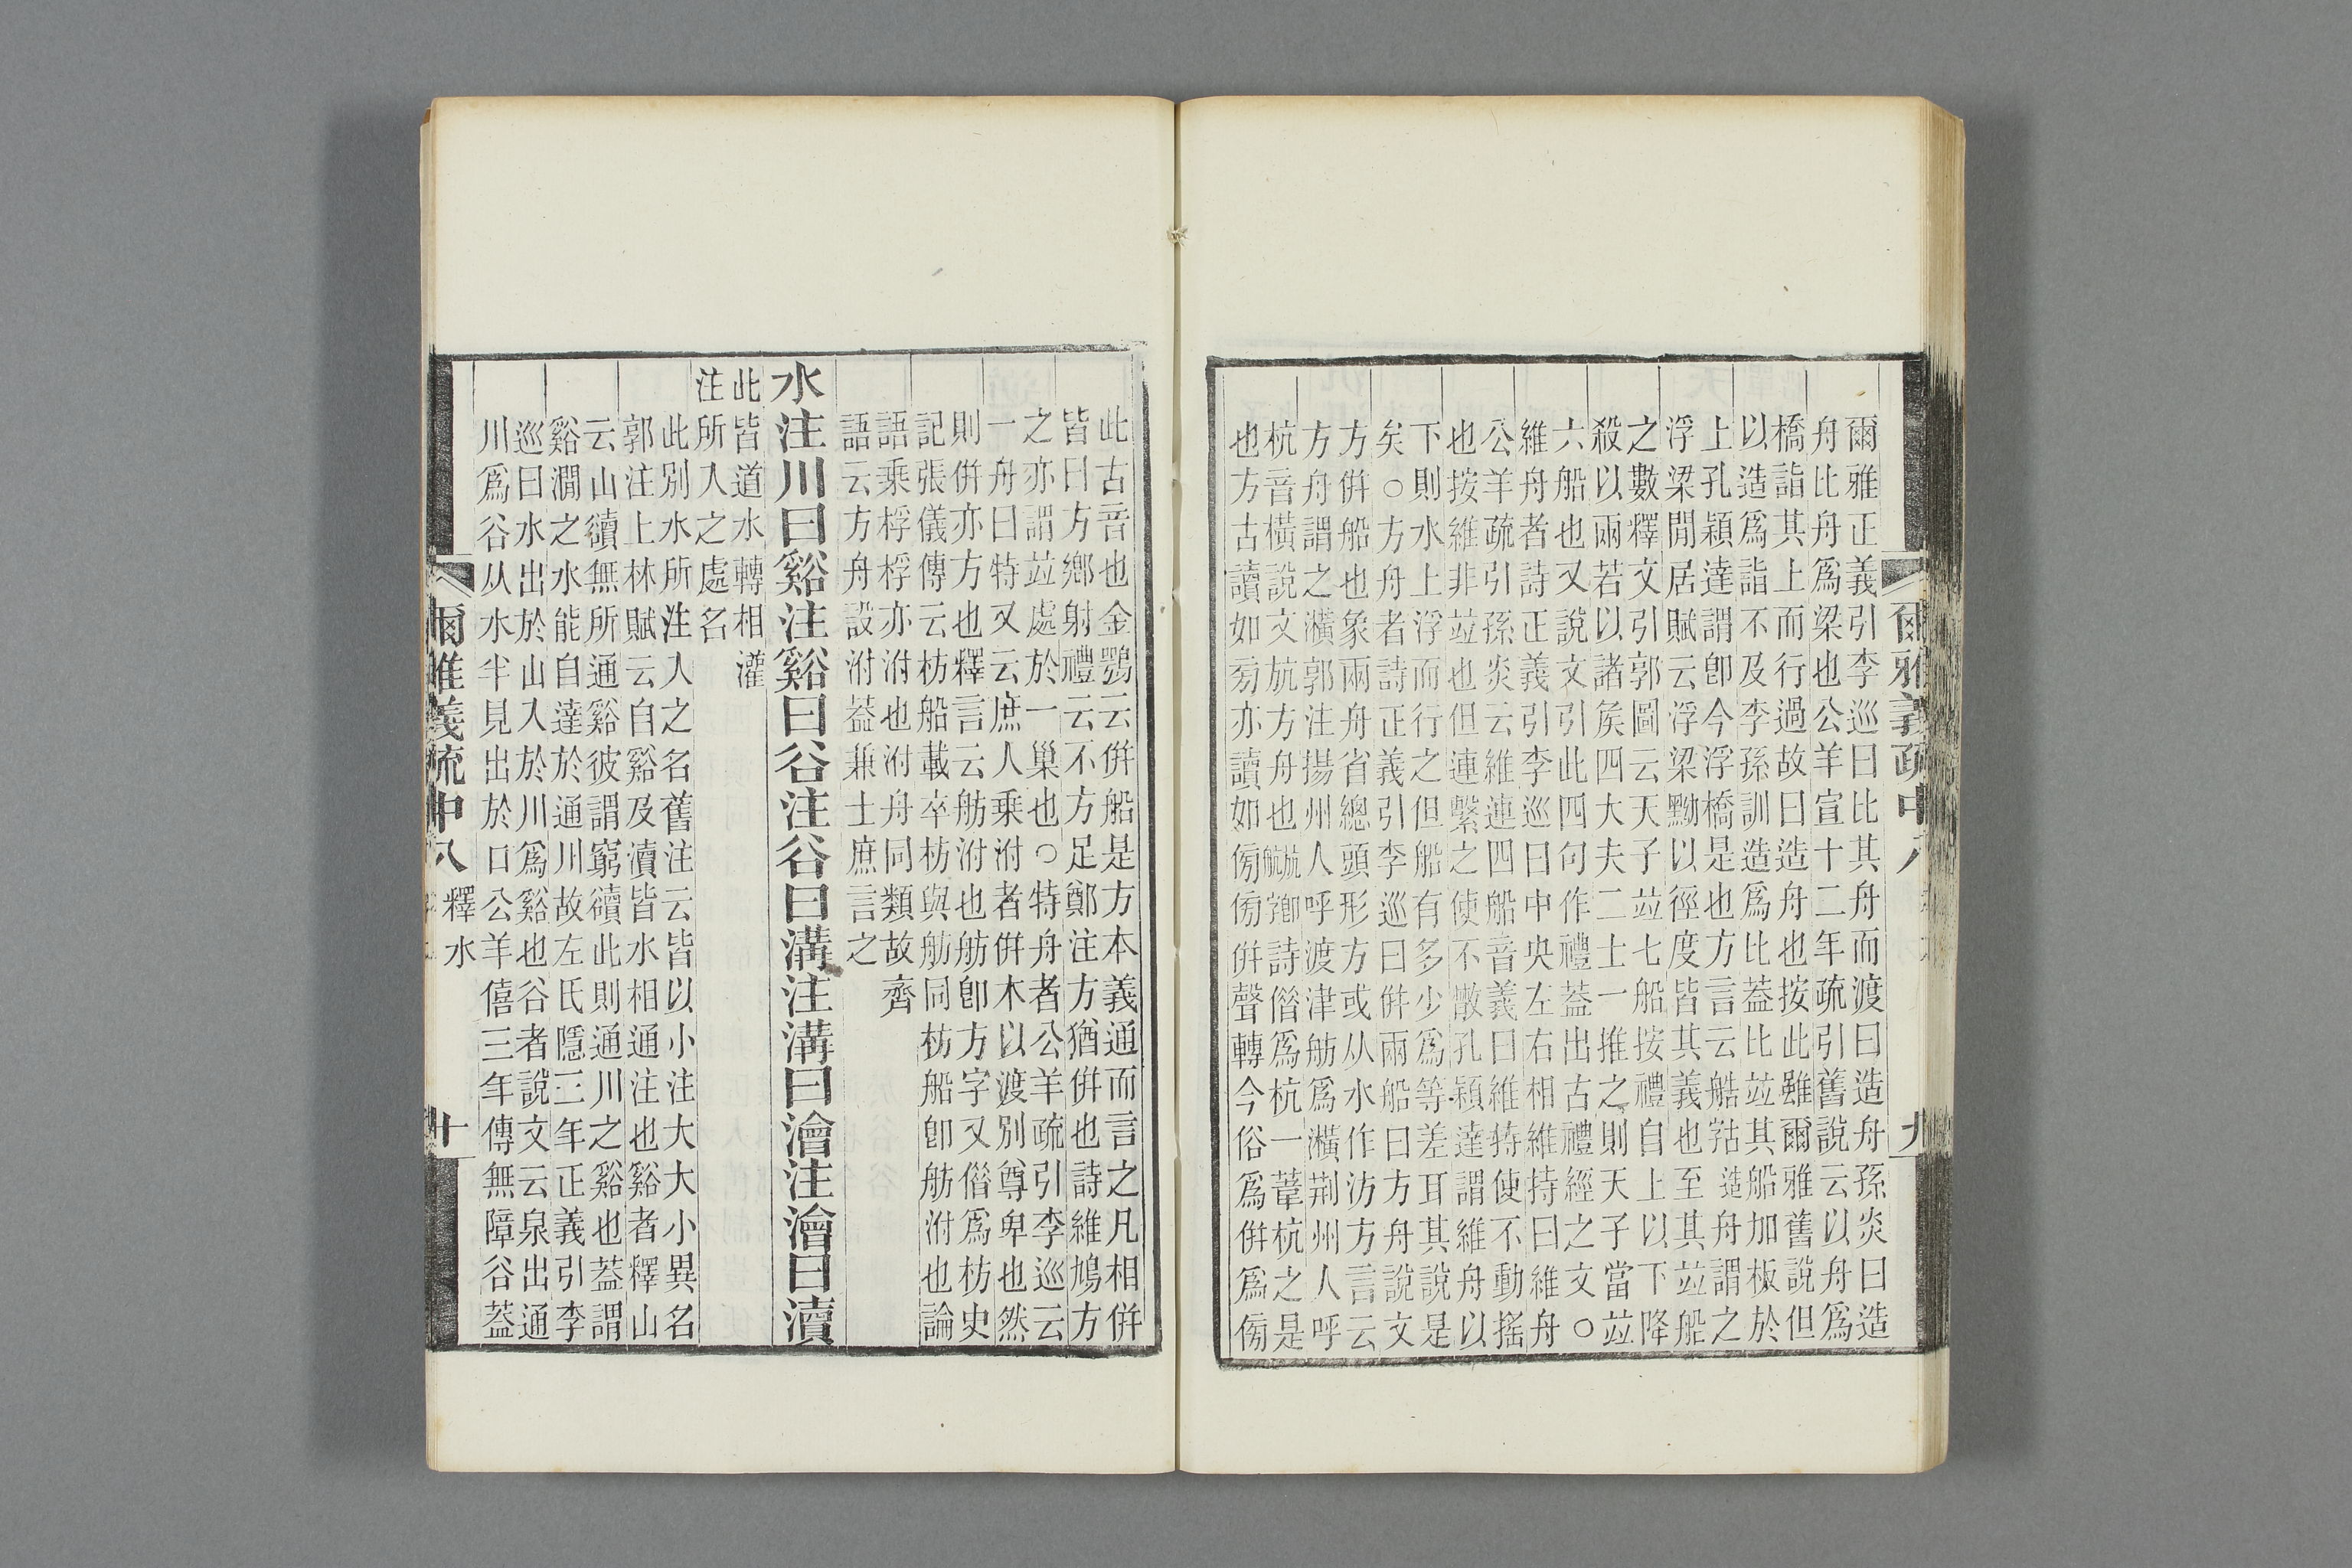 爾雅義疏中八
九
爾雅正義引李巡曰比其舟而渡曰造舟孫炎曰造
舟比舟爲梁也公羊宣十二年疏引舊說云以舟爲
橋詣其上而行過故曰造舟也按此雖爾雅舊說但
以造爲詣不及李孫訓造爲比葢比竝其船加板於
上孔穎達謂卽今浮橋是也方言云艁造舟謂之
浮梁閒居賦云浮梁黝以徑度皆其義也至其竝船
之數釋文引郭圖云天子竝七船按禮自上以下降
殺以兩若以諸矦四大夫二士一推之則天子當竝
六船也又說文引此四句作禮葢出古禮經之文○
維舟者詩正義引李巡曰中央左右相維持曰維舟
公羊疏引孫炎云維連四船音義曰維持使不動搖
也按維非竝也但連繫之使不㪚孔穎達謂維舟以
下則水上浮而行之但船有多少爲等差耳其說是
矣○方舟者詩正義引李巡曰倂兩船曰方舟說文
方倂船也象兩舟省總頭形方或从水作汸方言云
方舟謂之㶇郭注揚州人呼渡津舫爲㶇荆州人呼
杭音橫說文斻方舟也斻卽航字詩偕爲杭一葦杭之是
也方古讀如㫄亦讀如傍傍倂聲轉今俗爲倂爲傍
此古音也金鶚云倂船是方本義通而言之凡相倂
皆曰方鄉射禮云不方足鄭注方猶倂也詩維鳩方
之亦謂竝處於一巢也○特舟者公羊疏引李巡云
一舟曰特又云庶人乘泭者倂木以渡別尊卑也然
則倂亦方也釋言云舫泭也舫卽方字又偕爲枋史
記張儀傳云枋船載卒枋與舫同枋船卽舫泭也論
語乘桴桴亦泭也泭舟同類故齊
語云方舟設泭葢兼士庶言之
水注川曰谿注谿曰谷注谷曰溝注溝曰澮注澮曰瀆
此皆道水轉相灌
注所入之處名
此別水所注入之名舊注云皆以小注大大小異名
郭注上林賦云自谿及瀆皆水相通注也谿者釋山
云山豄無所通谿彼謂窮豄此則通川之谿也葢謂
谿澗之水能自達於通川故左氏隱三年正義引李
巡曰水出於山入於川爲谿也谷者說文云泉出通
川爲谷从水半見出於口公羊僖三年傳無障谷葢
爾雅義疏中八
釋水
十